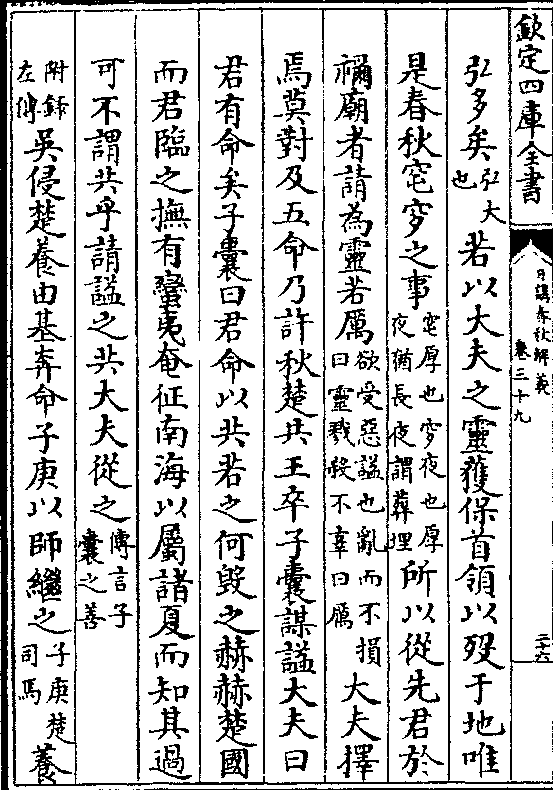 欽定四庫全書
日講春秋解義
卷三十九
二十六
弘多矣弘大也若以大夫之靈獲保首領以歿于地唯
是春秋窀穸之事窀厚也穸夜也厚夜猶長夜謂葬埋所以從先君於
禰廟者請為靈若厲欲受惡謚也亂而不損曰靈戮殺不辜曰厲大夫擇
焉莫對及五命乃許秋楚共王卒子囊謀謚大夫曰
君有命矣子囊曰君命以共若之何毀之赫赫楚國
而君臨之撫有蠻夷奄征南海以屬諸夏而知其過
可不謂共乎請謚之共大夫從之傳言子囊之善
附錄左傳吳侵楚養由基奔命子庚以師繼之子庚楚司馬養